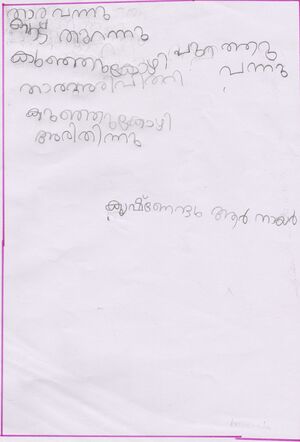 താര വന്നു
കൂട തുറന്നു
കുഞ്ഞുകോഴി പുറത്തു
വന്നു
താര അരി
കുഞ്ഞുകോഴി
അരിതിന്നു
കൃഷ്ണേന്ദു ആർ നായർ